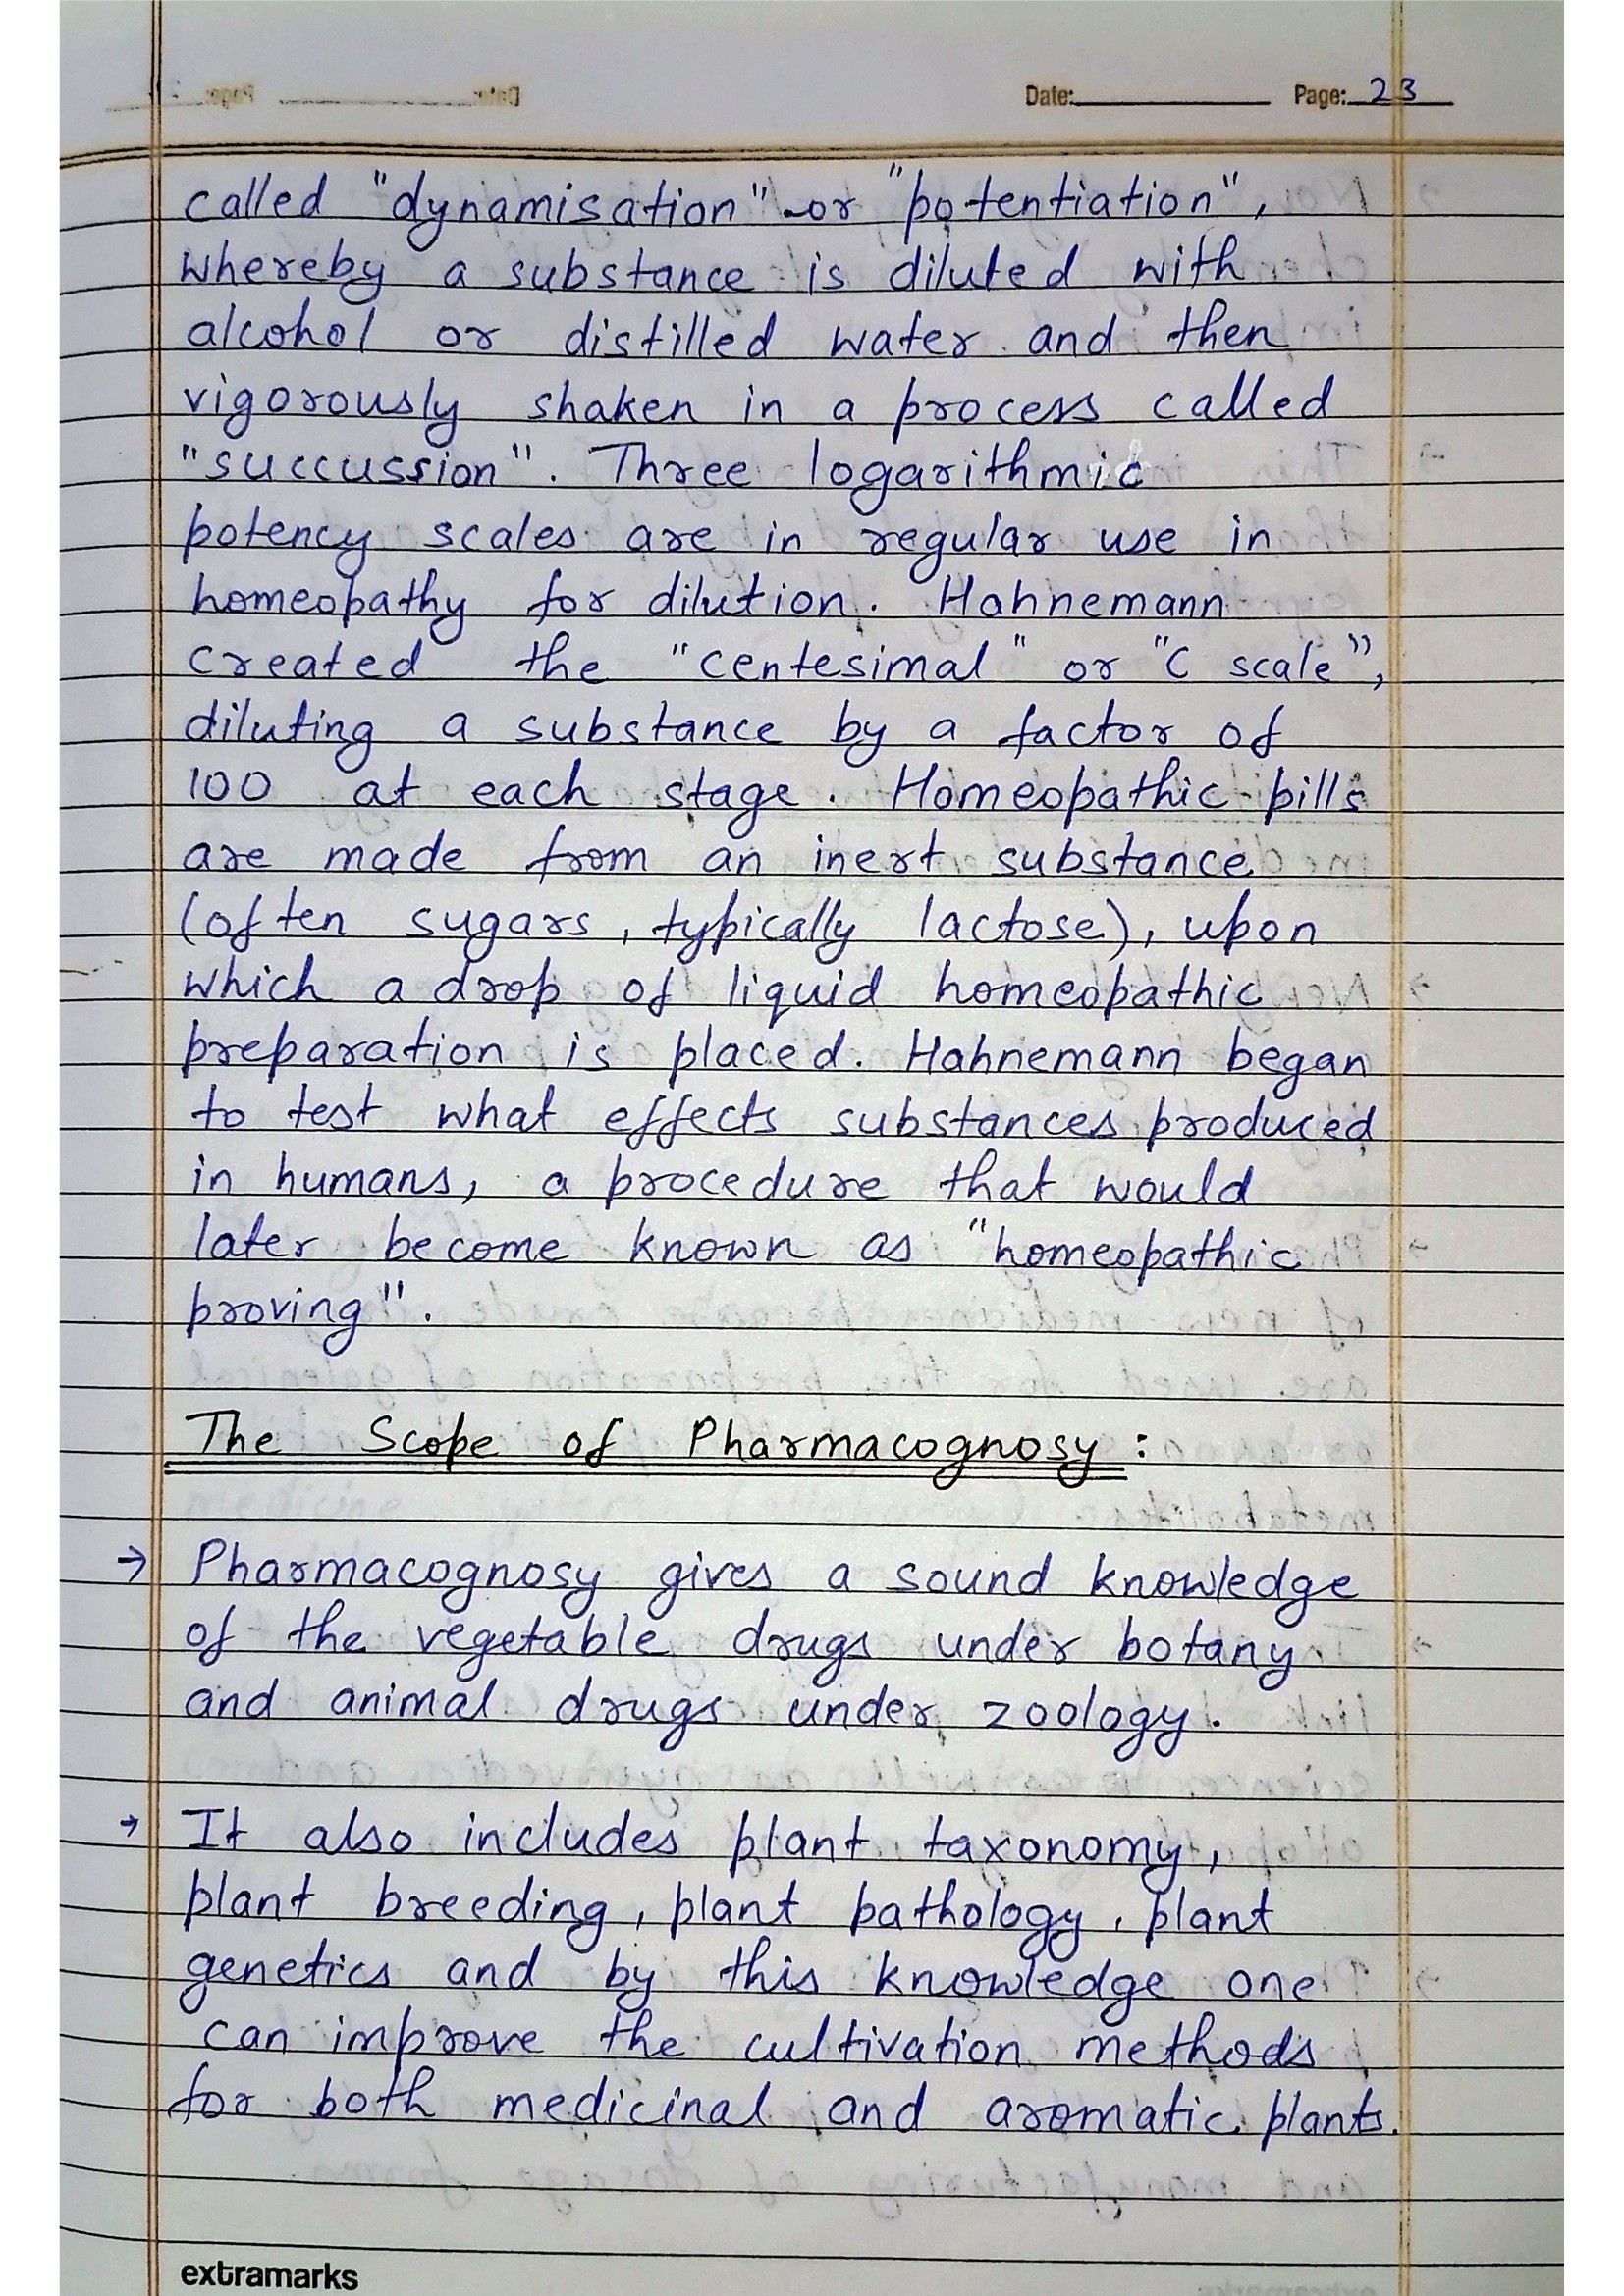 Date: Page: 23
called "dynamisation" or "potentiation",
whereby a substance is diluted with
alcohol or distilled water and then
vigorously shaken in a process called
"succussion". Three logarithmic
potency scales are in regular use in
homeopathy for dilution. Hahnemann
created the "centesimal" or "C scale",
diluting a substance by a factor of
100 at each stage. Homeopathic pills
are made from an inert substance
(often sugars, typically lactose), upon
which a drop of liquid homeopathic
preparation is placed. Hahnemann began
to test what effects substances produced
in humans, a procedure that would
later become known as "homeopathic
proving".
The Scope of Pharmacognosy:
→ Pharmacognosy gives a sound knowledge
of the vegetable drugs under botany
and animal drugs under zoology.
→ It also includes plant taxonomy,
plant breeding, plant pathology, plant
genetics and by this knowledge one
can improve the cultivation methods
for both medicinal and aromatic plants.
extramarks